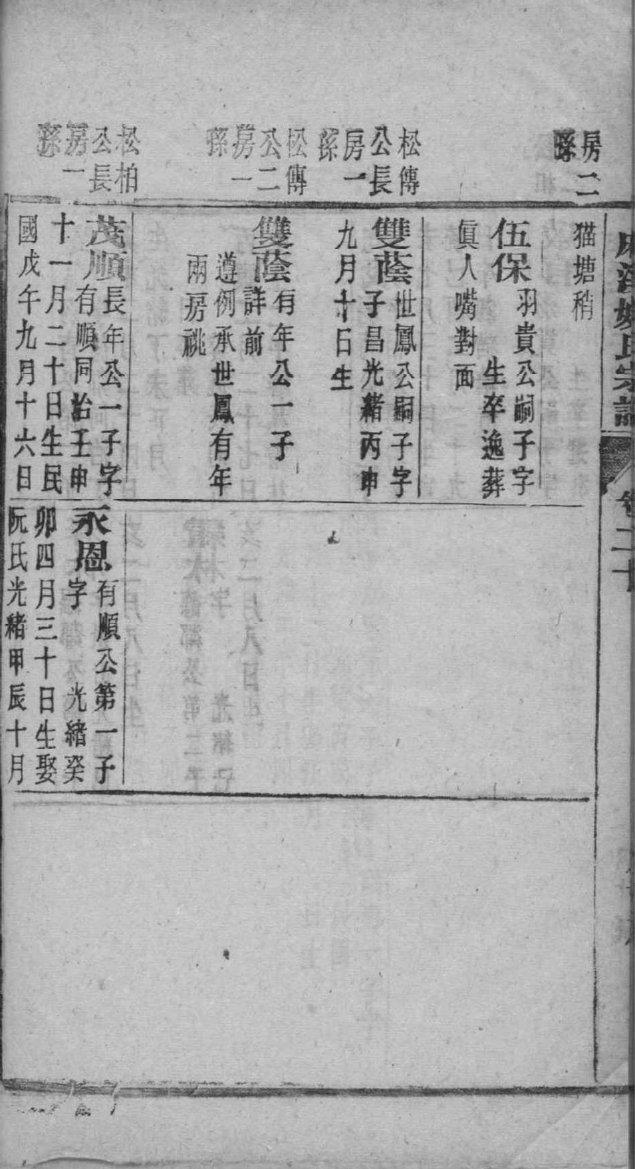 房二
孫
松傳
公長
房一
孫
松傳
公二
房一
孫
松柏
公長
房一
孫
姚氏宗譜
卷二十
猫塘稍
伍保
羽貴公嗣子字
生卒逸葬
眞人嘴對面
雙蔭
世鳳公嗣子字
子昌光緒丙申
九月十日生
雙蔭
有年公一子
詳前
遵例承世鳳有年
兩房祧
茂順
長年公一子字
有順同治壬申
十一月二十日生民
國戊午九月十六日
永恩
有順公第一子
字 光緒癸
卯四月三十日生娶
阮氏光緒甲辰十月